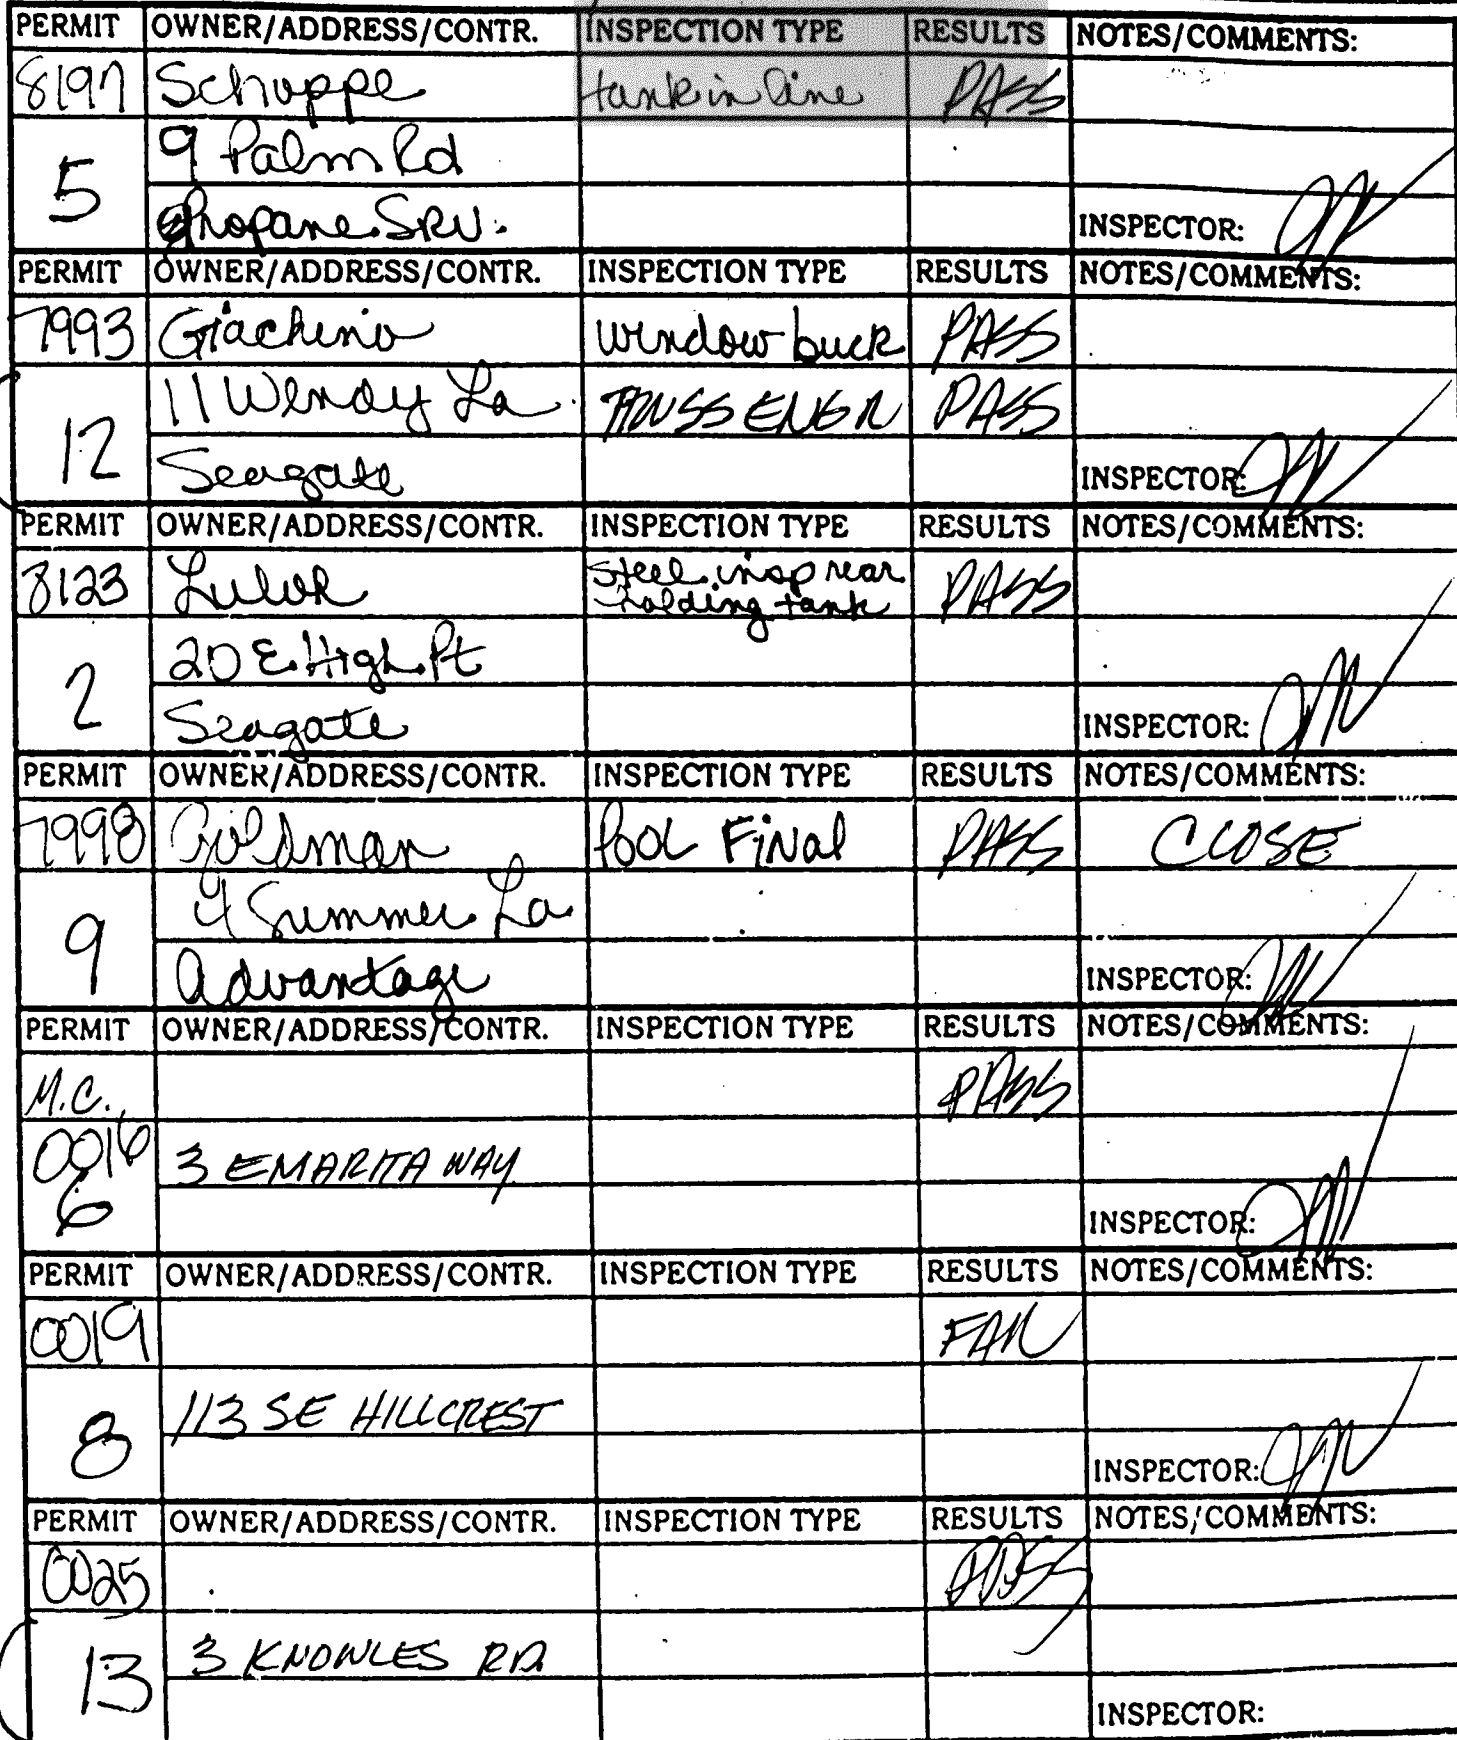 PERMIT OWNER/ADDRESS/CONTR. INSPECTION TYPE RESULTS NOTES/COMMENTS:
8197 Schoppe tank in line PASS
5 9 Palm Rd
Propane Srv. INSPECTOR:
PERMIT OWNER/ADDRESS/CONTR. INSPECTION TYPE RESULTS NOTES/COMMENTS:
7993 Giachino window buck PASS
12 11 Wendy La TRUSS ENGR PASS
Seagate INSPECTOR:
PERMIT OWNER/ADDRESS/CONTR. INSPECTION TYPE RESULTS NOTES/COMMENTS:
8123 steel insp rear PASS
holding tank
2 20 E. High Pt
Seagate INSPECTOR:
PERMIT OWNER/ADDRESS/CONTR. INSPECTION TYPE RESULTS NOTES/COMMENTS:
7998 Goldman Pool Final PASS CLOSE
9 4 Summer La
Advantage INSPECTOR:
PERMIT OWNER/ADDRESS/CONTR. INSPECTION TYPE RESULTS NOTES/COMMENTS:
M.C. PASS
0016 3 EMARITA WAY
6 INSPECTOR:
PERMIT OWNER/ADDRESS/CONTR. INSPECTION TYPE RESULTS NOTES/COMMENTS:
0019 FAIL
8 113 SE HILLCREST
INSPECTOR:
PERMIT OWNER/ADDRESS/CONTR. INSPECTION TYPE RESULTS NOTES/COMMENTS:
0025 PASS
13 3 KNOWLES RD.
INSPECTOR: